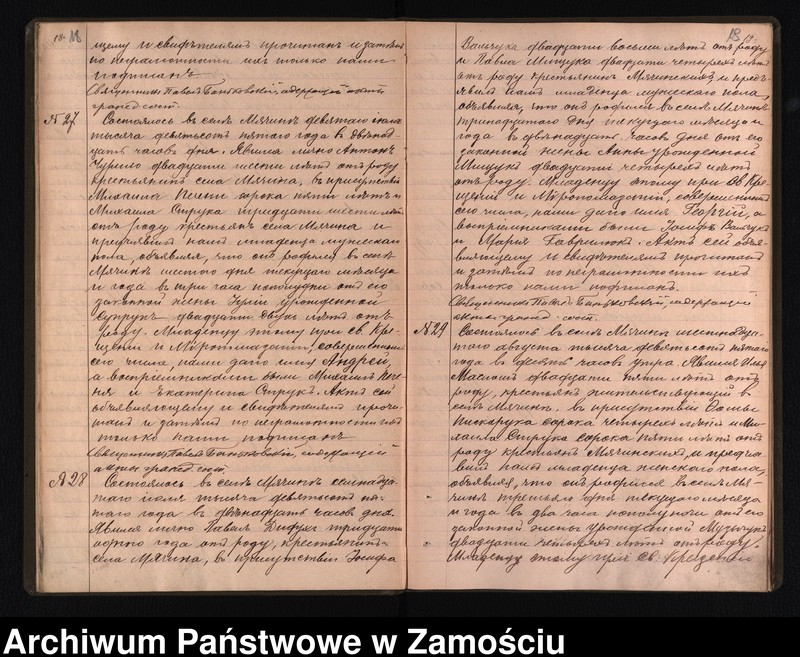 18.
щему и свидѣтелямъ прочитанъ и затѣмъ
по неграмотности ихъ только нами
подписанъ
Священникъ Павелъ содержащій акты
гражд. сост.
№ 27
Состоялось въ селѣ Мячинѣ девятаго іюля
тысяча девятьсотъ пятаго года въ двѣнад-
цать часовъ дня. Явился лично Антонъ
Чурило двадцати шести лѣтъ отъ роду
крестьянинъ села Мячина, въ присутствіи
Михаила сорока пяти лѣтъ и
Михаила Струка тридцати шести лѣтъ
отъ роду крестьянъ села Мячина и
предъявилъ намъ младенца мужескаго
пола, объявляя, что онъ родился въ селѣ
Мячинѣ шестого дня текущаго мѣсяца
и года въ три часа пополудни отъ его
законной жены урожденной
Струкъ двадцати двухъ лѣтъ отъ
роду. Младенцу этому при св. Кре-
щеніи и Миропомазаніи, совершенномъ
сего числа, нами дано имя Андрей,
а воспріемниками были Михаилъ
и Екатерина Струкъ. Актъ сей
объявляющему и свидѣтелямъ прочи-
танъ и затѣмъ по неграмотности ихъ
только нами подписанъ
Священникъ Павелъ содержащій
акты гражд. сост.
№ 28
Состоялось въ селѣ Мячинѣ семнадца-
таго іюля тысяча девятьсотъ пя-
таго года въ двѣнадцать часовъ дня.
Явился лично Павелъ тридцати
одного года отъ роду, крестьянинъ
села Мячина, въ присутствіи Іосифа
18
двадцати восьми лѣтъ отъ роду
и Павла Мищука двадцати четырехъ лѣтъ
отъ роду крестьянъ Мячинскихъ и предъ-
явилъ намъ младенца мужескаго пола,
объявляя, что онъ родился въ селѣ Мячинѣ
тринадцатаго дня текущаго мѣсяца
и года въ двѣнадцать часовъ дня отъ его
законной жены Анны урожденной
Мищукъ двадцати четырехъ лѣтъ
отъ роду. Младенцу этому при Св. Кре-
щеніи и Миропомазаніи, совершенномъ
сего числа, нами дано имя Георгій, а
воспріемниками были Іосифъ
и Марія Гаврилюкъ. Актъ сей объя-
вляющему и свидѣтелямъ прочитанъ
и затѣмъ по неграмотности ихъ
только нами подписанъ.
Священникъ Павелъ содержащій
акты гражд. сост.
№ 29
Состоялось въ селѣ Мячинѣ шестнадца-
таго августа тысяча девятьсотъ пятаго
года въ десять часовъ утра. Явился Илья
двадцати пяти лѣтъ отъ
роду, крестьянинъ жительствующій въ
селѣ Мячинѣ, въ присутствіи
Пискорука сорока четырехъ лѣтъ и Ми-
хаила Струка сорока пяти лѣтъ отъ
роду крестьянъ Мячинскихъ и предъя-
вилъ намъ младенца женскаго пола,
объявляя, что онъ родился въ селѣ Мя-
чинѣ третьяго дня текущаго мѣсяца
и года въ два часа пополуночи отъ его
законной жены урожденной Мищукъ
двадцати четырехъ лѣтъ отъ роду.
Младенцу этому при Св. Крещеніи
Archiwum Państwowe w Zamościu